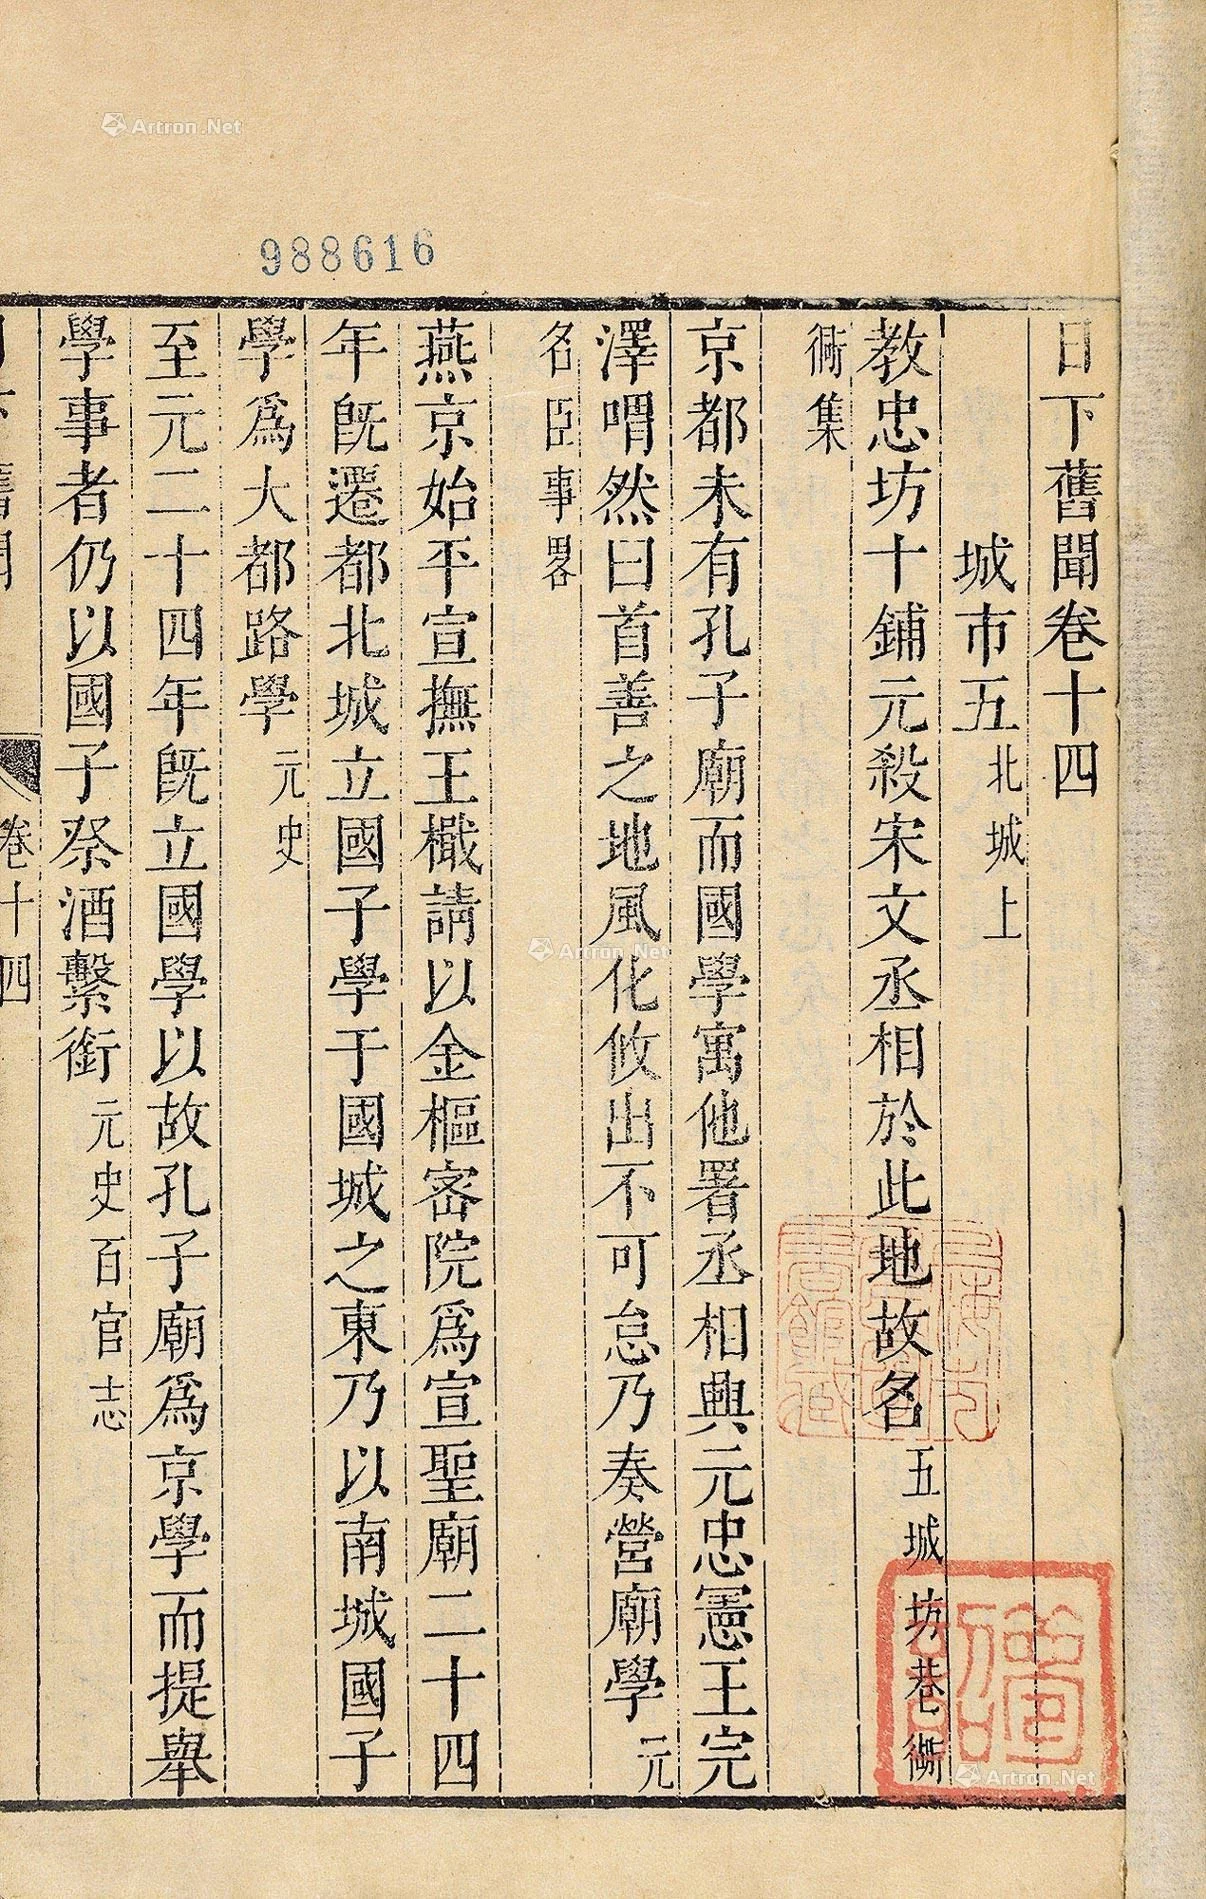 日下舊聞卷十四
城市五北城上
教忠坊十鋪元殺宋文丞相於此地故名五城坊巷衚
衕集
京都未有孔子廟而國學寓他署丞相興元忠憲王完
澤喟然曰首善之地風化攸出不可怠乃奏營廟學元
名臣事畧
燕京始平宣撫王檝請以金樞密院爲宣聖廟二十四
年旣遷都北城立國子學于國城之東乃以南城國子
學爲大都路學元史
至元二十四年旣立國學以故孔子廟爲京學而提舉
學事者仍以國子祭酒繫銜元史百官志
日下舊聞 卷十四
988616
Artron.Net
Artron.Net
Artron.Net